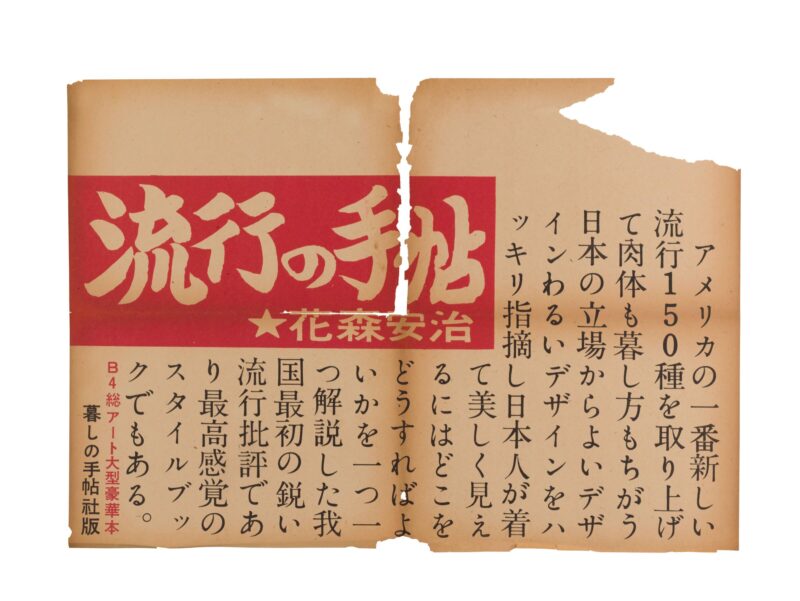 流行の手帖
★花森安治
アメリカの一番新しい
流行150種を取り上げ
て肉体も暮し方もちがう
日本の立場からよいデザ
インわるいデザインをハ
ッキリ指摘し日本人が着
て美しく見え
るにはどこを
どうすればよ
いかを一つ一
つ解説した我
国最初の鋭い
流行批評であ
り最高感覚の
スタイルブッ
クでもある。
B4総アート大型豪華本
暮しの手帖社版